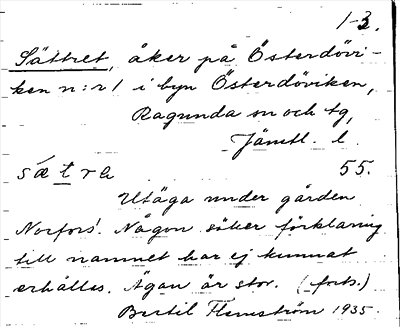 1-3.
Sättret, åker på Österdövi-
ken n:r 1 i byn Österdöviken,
Ragunda sn och tg,
Jämtl. l.
sætra 55.
Utäga under gården
Norfors. Någon säker förklaring
till namnet har ej kunnat
erhållas. Ägan är stor. (forts.)
Bertil Flemström 1935.